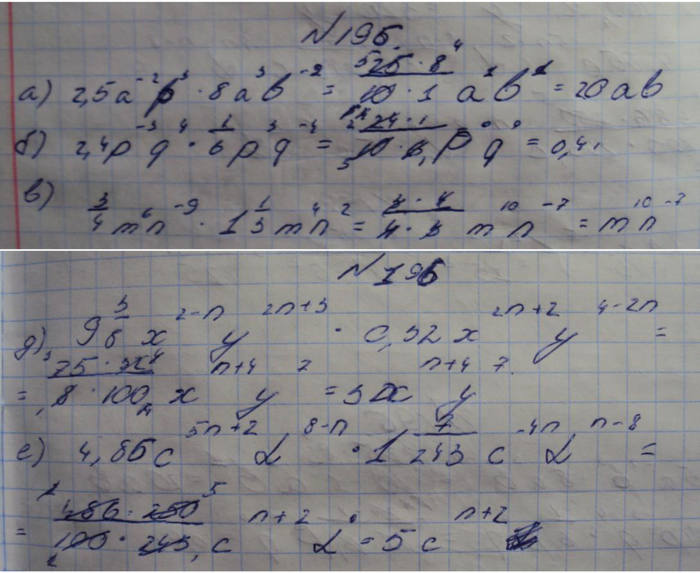 N 195.
а) 2,5a⁻²b³ · 8a³b⁻² = 25 · 8 / 10 · 1 a¹b¹ = 20ab
б) 2,4p⁻³q⁴ · 1/6 p³q⁻⁴ = 24 · 1 / 10 · 6 p⁰q⁰ = 0,4
в) 3/4 m⁶n⁻⁹ · 1 1/3 m⁴n² = 3 · 4 / 4 · 3 m¹⁰n⁻⁷ = m¹⁰n⁻⁷
N 196
д) 9 3/8 x²⁻ⁿ y²ⁿ⁺³ · 0,32x²ⁿ⁺² y⁴⁻²ⁿ =
= 75 · 32 / 8 · 100 xⁿ⁺⁴ y⁷ = 3xⁿ⁺⁴ y⁷
е) 4,86c⁵ⁿ⁺² d⁸⁻ⁿ · 1 7/243 c⁻⁴ⁿ dⁿ⁻⁸ =
= 486 · 250 / 100 · 243 cⁿ⁺² d⁰ = 5cⁿ⁺²